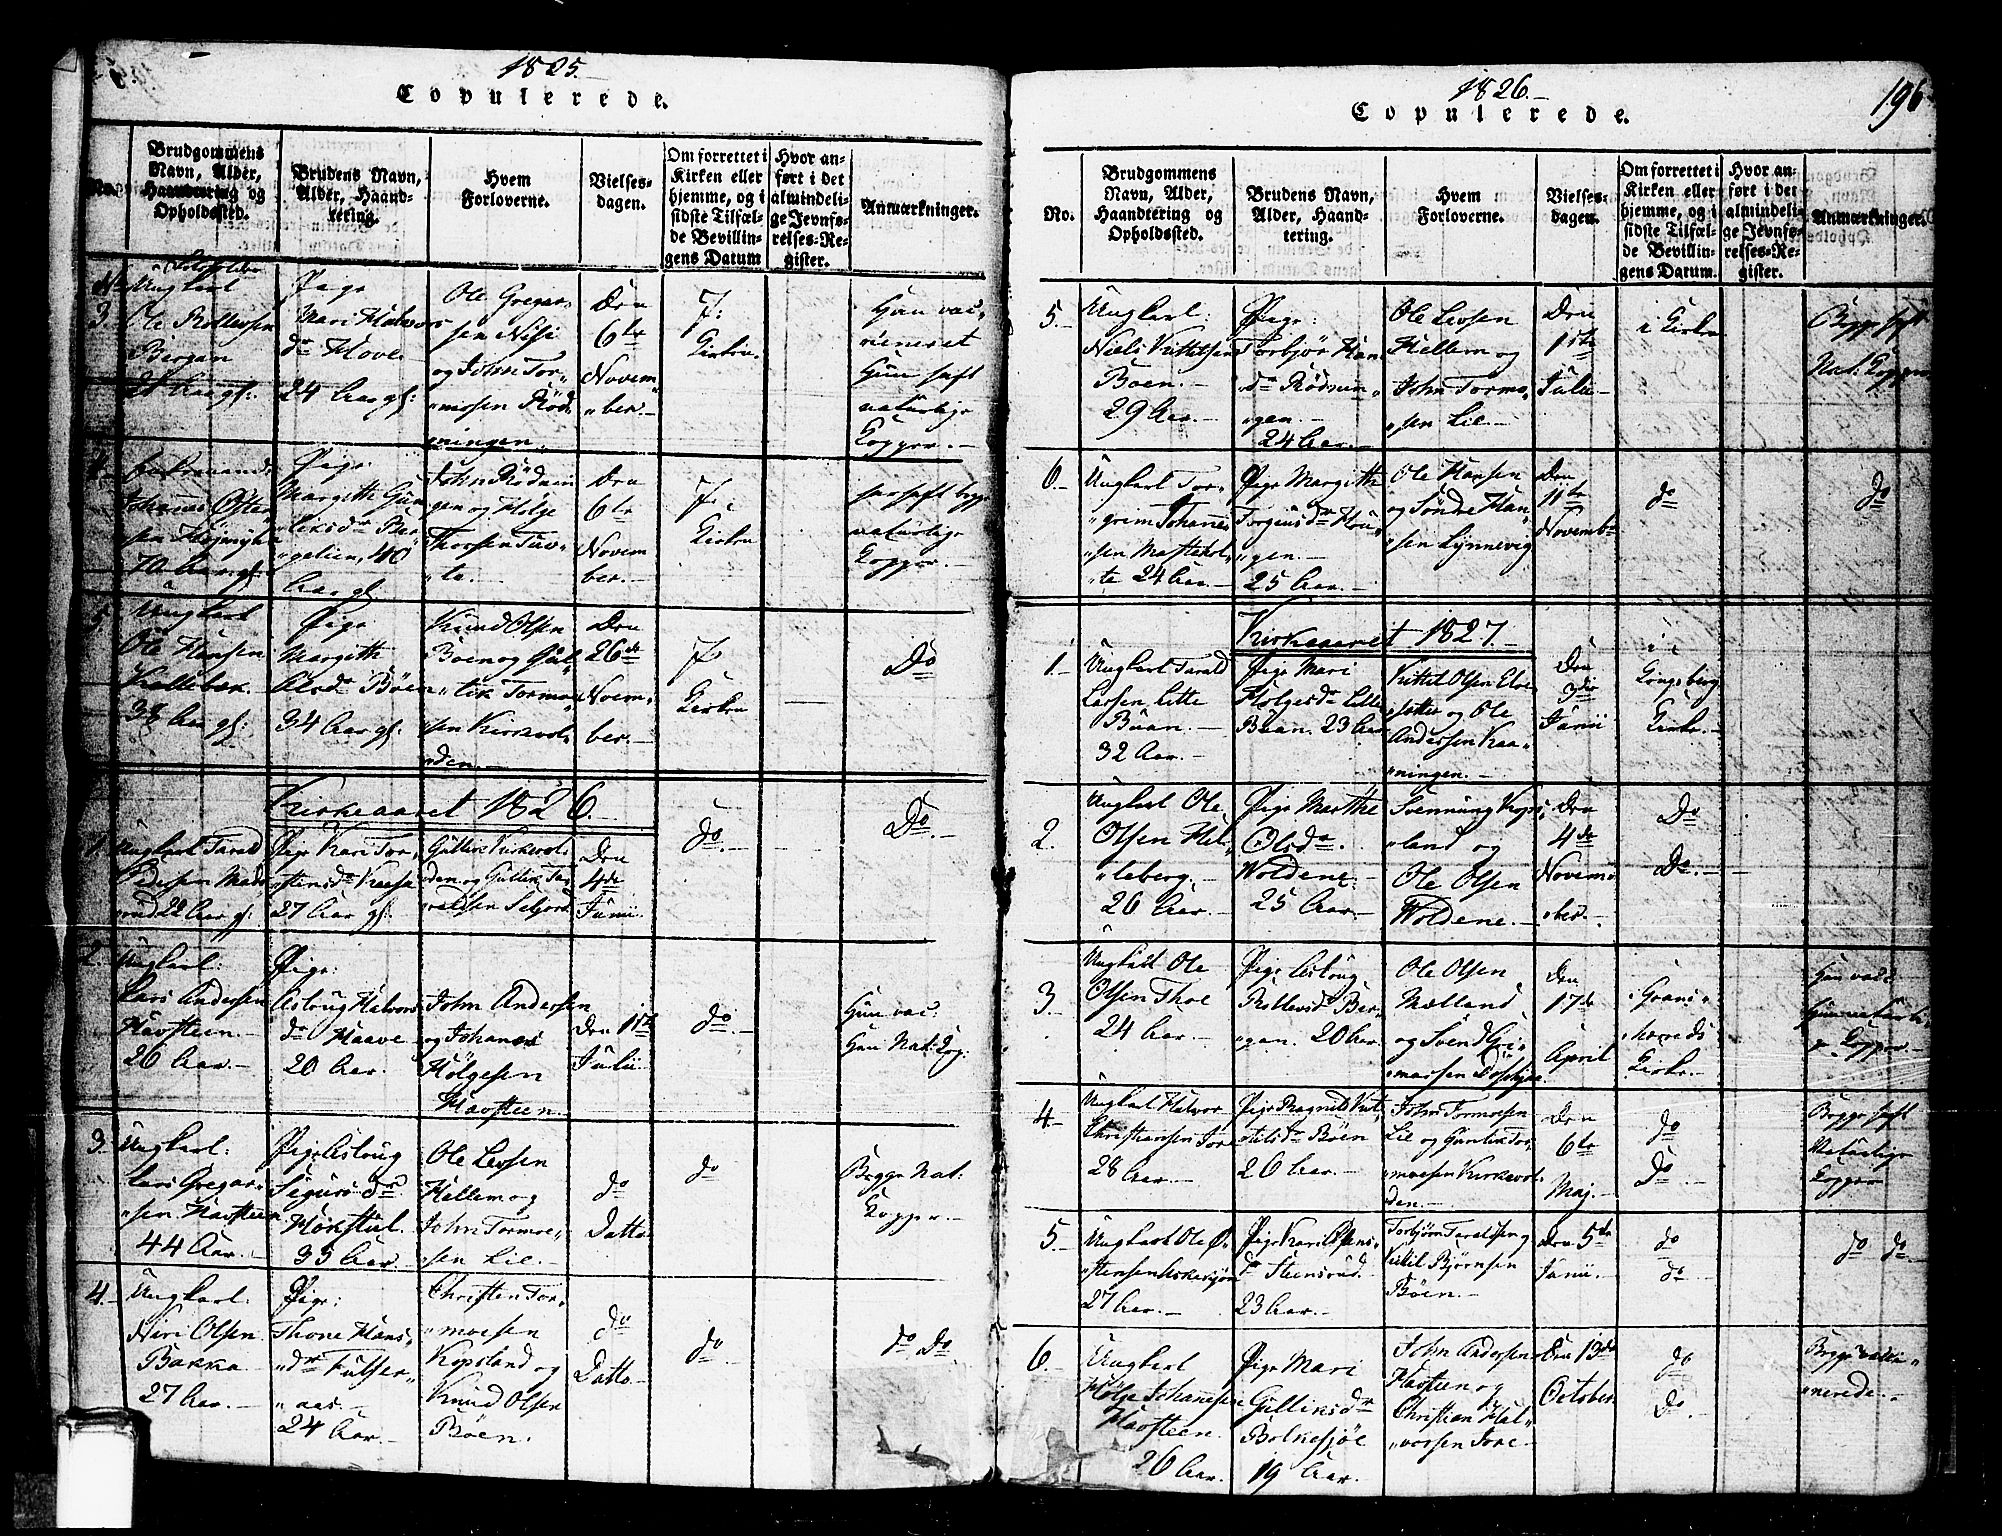 1825.
Copulerede.
No.
Brudgommens
Navn, Alder,
Haandtering og
Opholdssted.
Brudens Navn,
Alder, Haand-
tering.
Hvem
Forloverne.
Vielses-
dagen.
Om forrettet i
Kirken eller
hjemme, og i
sidste Tilfæl-
de Bevillin-
gens Datum
Hvor an-
ført i det
almindeli-
ge Jevnfø-
relses-Re-
gister.
Anmærkninger.
3.
Ungkarl
Ole Rollefsen
Bergan
Pige
Mari Halvors
dr Hove
24 Aar gl:
Ole Gregar,
sen Nisi
og John Tor,
"mosen Rød
ningen.
Den
6te
Novem
"ber.
I
Kirken
Hun vac,
cineret
Hun haft
naturlige
Kopper.
4
Enkemand
70 Aar gl:
Pige
Margith Gun
leksdr
40
Aar gl
John Rødnin
gen og Holge
Thorsen Tuv,
"te.
Den
6te
Novem
ber.
I
Kirken
har haft
naturlige
Kopper.
5
Ungkarl
Ole Hansen
Kallebek.
38 Aar gl:
Pige
Margith
Olsdr Böen
34 Aar gl:
Knud Olsen
Böen og Gul
"lik Tormo
sen Kirkevol,
"den.
Den
26de
Novem,
ber.
I
Kirken
Do
Kirkeaaret 1826.
1
Ungkarl Tarald
22 Aar gl:
Pige Kari Tor,
"stensdr
27 Aar gl.
Gullik Kirkevol,
den og Gullik Ta,
raldsen Seljord
Den
4de
Junii
do.
Do.
2
Ungkarl:
Lars Andersen
Havsteen.
26 Aar.
Pige:
Astrug Halvors
dr Haave
20 Aar.
John Andersen
og Johanes
Hölgesen
Havsteen.
Den 1ste
Julii
do.
Hun vac.
Han Nat: Kop.
3.
Ungkarl:
Lars Gregar,
"sen Havsteen
44 Aar.
Pige Astrug
Sigursdr
Hökstul.
33 Aar
Ole Levsen
Hellem og
John Tormoe,
"sen Lie.
do
Datto
do
Begge Nat:
Kopper.
4.
Ungkarl.
Niri Olsen
Bakka
27 Aar.
Pige:
Thone Hans,
"dr Fulser,
"aas.
24 Aar.
Christen Tor,
"moesen
Kopsland og
Knud Olsen
Böen.
do
Datto
do
do Do
1826.
196
Copulerede.
No.
Brudgommens
Navn, Alder,
Haandtering og
Opholdssted.
Brudens Navn,
Alder, Haand-
tering.
Hvem
Forloverne.
Vielses-
dagen.
Om forrettet i
Kirken eller
hjemme, og i
sidste Tilfæl-
de Bevillin-
gens Datum.
Hvor an-
ført i det
almindeli-
ge Jevnfø-
relses-Re-
gister.
Anmærkninger.
5.
Ungkarl:
Niels Kittilsen
Böen.
29 Aar.
Pige:
Torbjör Han
dr Rödnin,
"gen.
24 Aar.
Ole Levsen
Hellem og
John Tormo,
"sen Lie.
Den
1ste
Julii
i Kirken
Begge haft
Nat. Kopper
6.
Ungkarl Tor,
"grim Johannes
"sen
"te 24 Aar.
Pige Margith
Torgiusdr
"gen.
25 Aar.
Ole Hansen
og Söndre Han
"sen Lynnevig
Den
11te
Novembr
do
do
Kirkeaaret 1827.
1.
Ungkarl Tarald
Larsen Litle
Buan.
32 Aar.
Pige Mari
Holgesdr Lille
Buan. 23 Aar
Kittil Olsen
og Ole
Andersen Kaa,
"ningen.
Den
3die
Junii
i
Kongsberg
Kirke.
2.
Ungkarl Ole
Olsen Hel,
"leberg.
26 Aar.
Pige Marthe
Olsdr.
Woldene.
25 Aar.
Svennung Kops,
"land og
Ole Olsen
Woldene.
Den
4de
Novem
"ber.
Do
Do.
3
Ungkarl Ole
Olsen Thoe
24 Aar.
Pige Astrug
Rollevsdr Ber,
"gan. 20 Aar
Ole Olsen
Mælland
og Svend
Den
17de
April
i Grans,
"herreds
Kirke.
Han vacc:
Hun naturli,
ge Kopper.
4
Ungkarl Halvor
Christiansen Jore
28 Aar.
Pige Ragnild Kit,
"tilsdr Böen
26 Aar.
John Tormoesen
Lie og Gunlik Tor,
"moesen Kirkevol
den.
Den
6te
Maj.
do
Do
Begge haft
Naturlige
Kopper
5.
Ungkarl Ole Ö
"stensen
27 Aar.
Pige Kari
dr Steensrud.
23 Aar.
Torbjörn Taraldsen og
Kittil Björnsen
Böen.
Den 5te
Junii.
do
do
do do
6.
Ungkarl
Hölge Johannesen
Havsteen.
26 Aar.
Pige Mari
Gulliksdr
Bolkesjöe
19 Aar.
John Andersen
Havsteen og
Christian Hal,
"vorsen Jore
Den 13de
October
do
Do
Begge vacci,
"nerede.